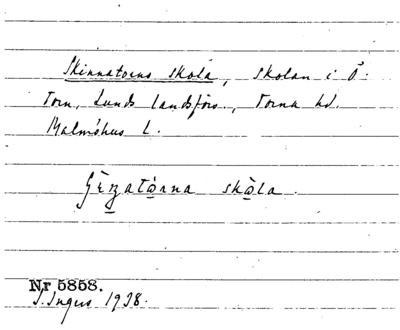 Skinnatorns skola, skolan i Ö.
Torn, Lunds landsförs., Torna hd.
Malmöhus L.
skola.
Nr 5858.
S. Ingers 1938.